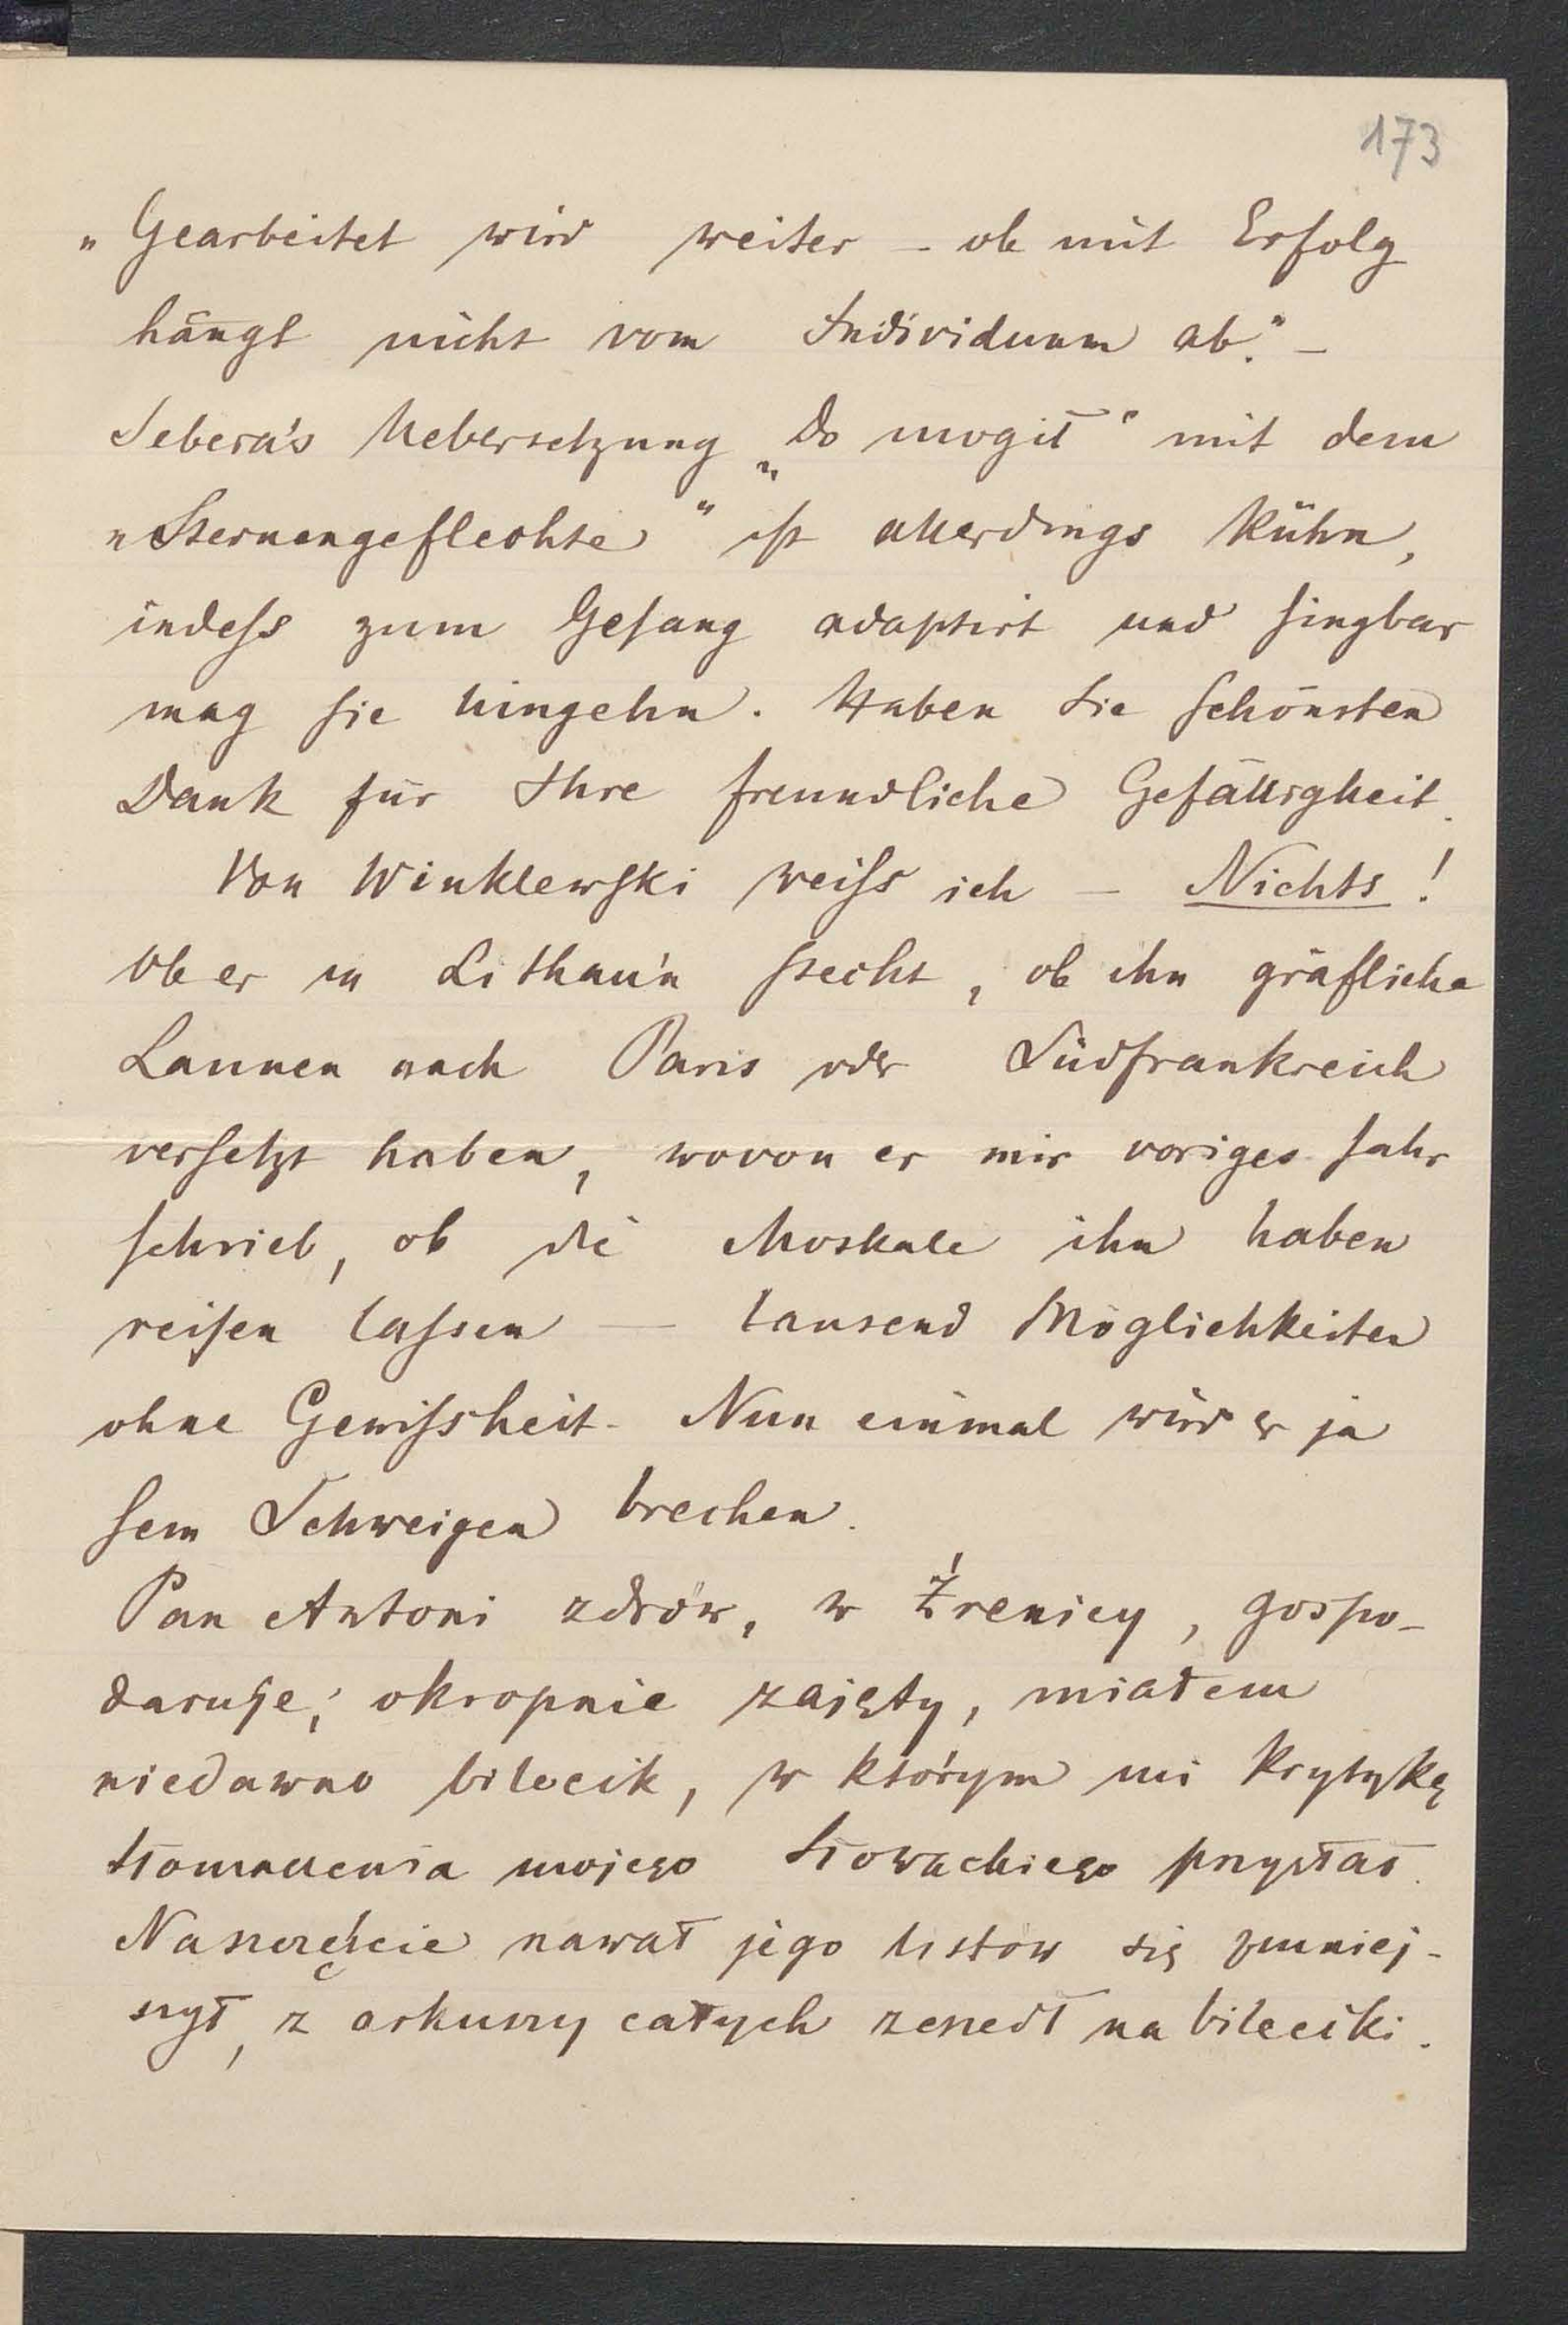 173
„Gearbeitet wird weiter – ob mit Erfolg
hängt nicht vom Individuum ab.“ –
Sebera's Uebersetzung „Do mogił“ mit dem
„Sternengeflechte“ ist allerdings kühn,
indess zum Gesang adaptirt und singbar
mag sie hingehn. Haben Sie schönsten
Dank für Ihre freundliche Gefälligkeit.
Von Winklewski weiss ich – Nichts!
Ob er in Lithau'n steckt, ob ihn gräfliche
Launen nach Paris oder Südfrankreich
versetzt haben, wovon er mir voriges Jahr
schrieb, ob die Moskale ihn haben
reisen lassen — tausend Möglichkeiten
ohne Gewissheit. Nun einmal wird er ja
sein Schweigen brechen.
Pan Antoni zdrów, w Źrenicy, gospo-
daruje; okropnie zajęty, miałem
niedawno bilecik, w którym mi krytykę
tłomaczenia mojego Słowackiego przysłał.
Naszczęście nawał jego listów się zmniej-
szył, z arkuszy całych zeszedł na bileciki.